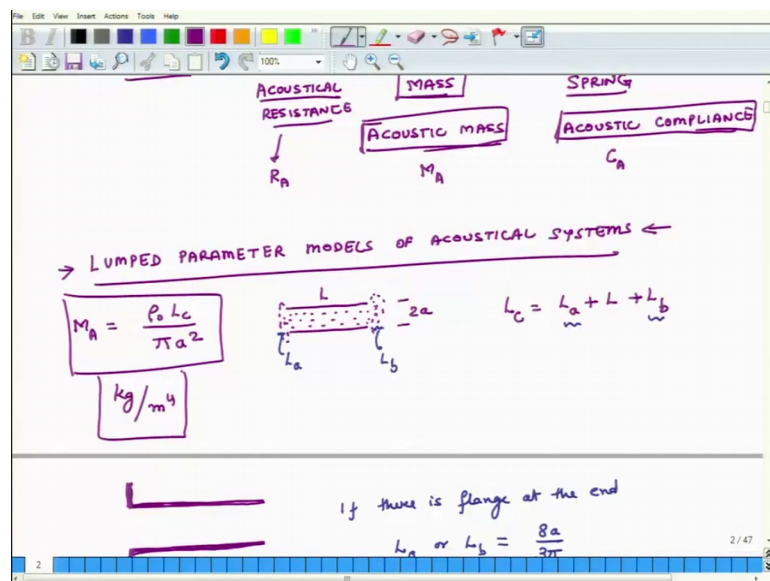 File Edit View Insert Actions Tools Help
B I
100%
ACOUSTICAL
RESISTANCE
R_A
MASS
ACOUSTIC MASS
M_A
SPRING
ACOUSTIC COMPLIANCE
C_A
→ LUMPED PARAMETER MODELS OF ACOUSTICAL SYSTEMS ←
M_A = ρ₀ L_c / π a²
kg/m⁴
L
2a
L_a
L_b
L_c = L_a + L + L_b
If there is flange at the end
L_a or L_b = 8a / 3π
2 / 47
2